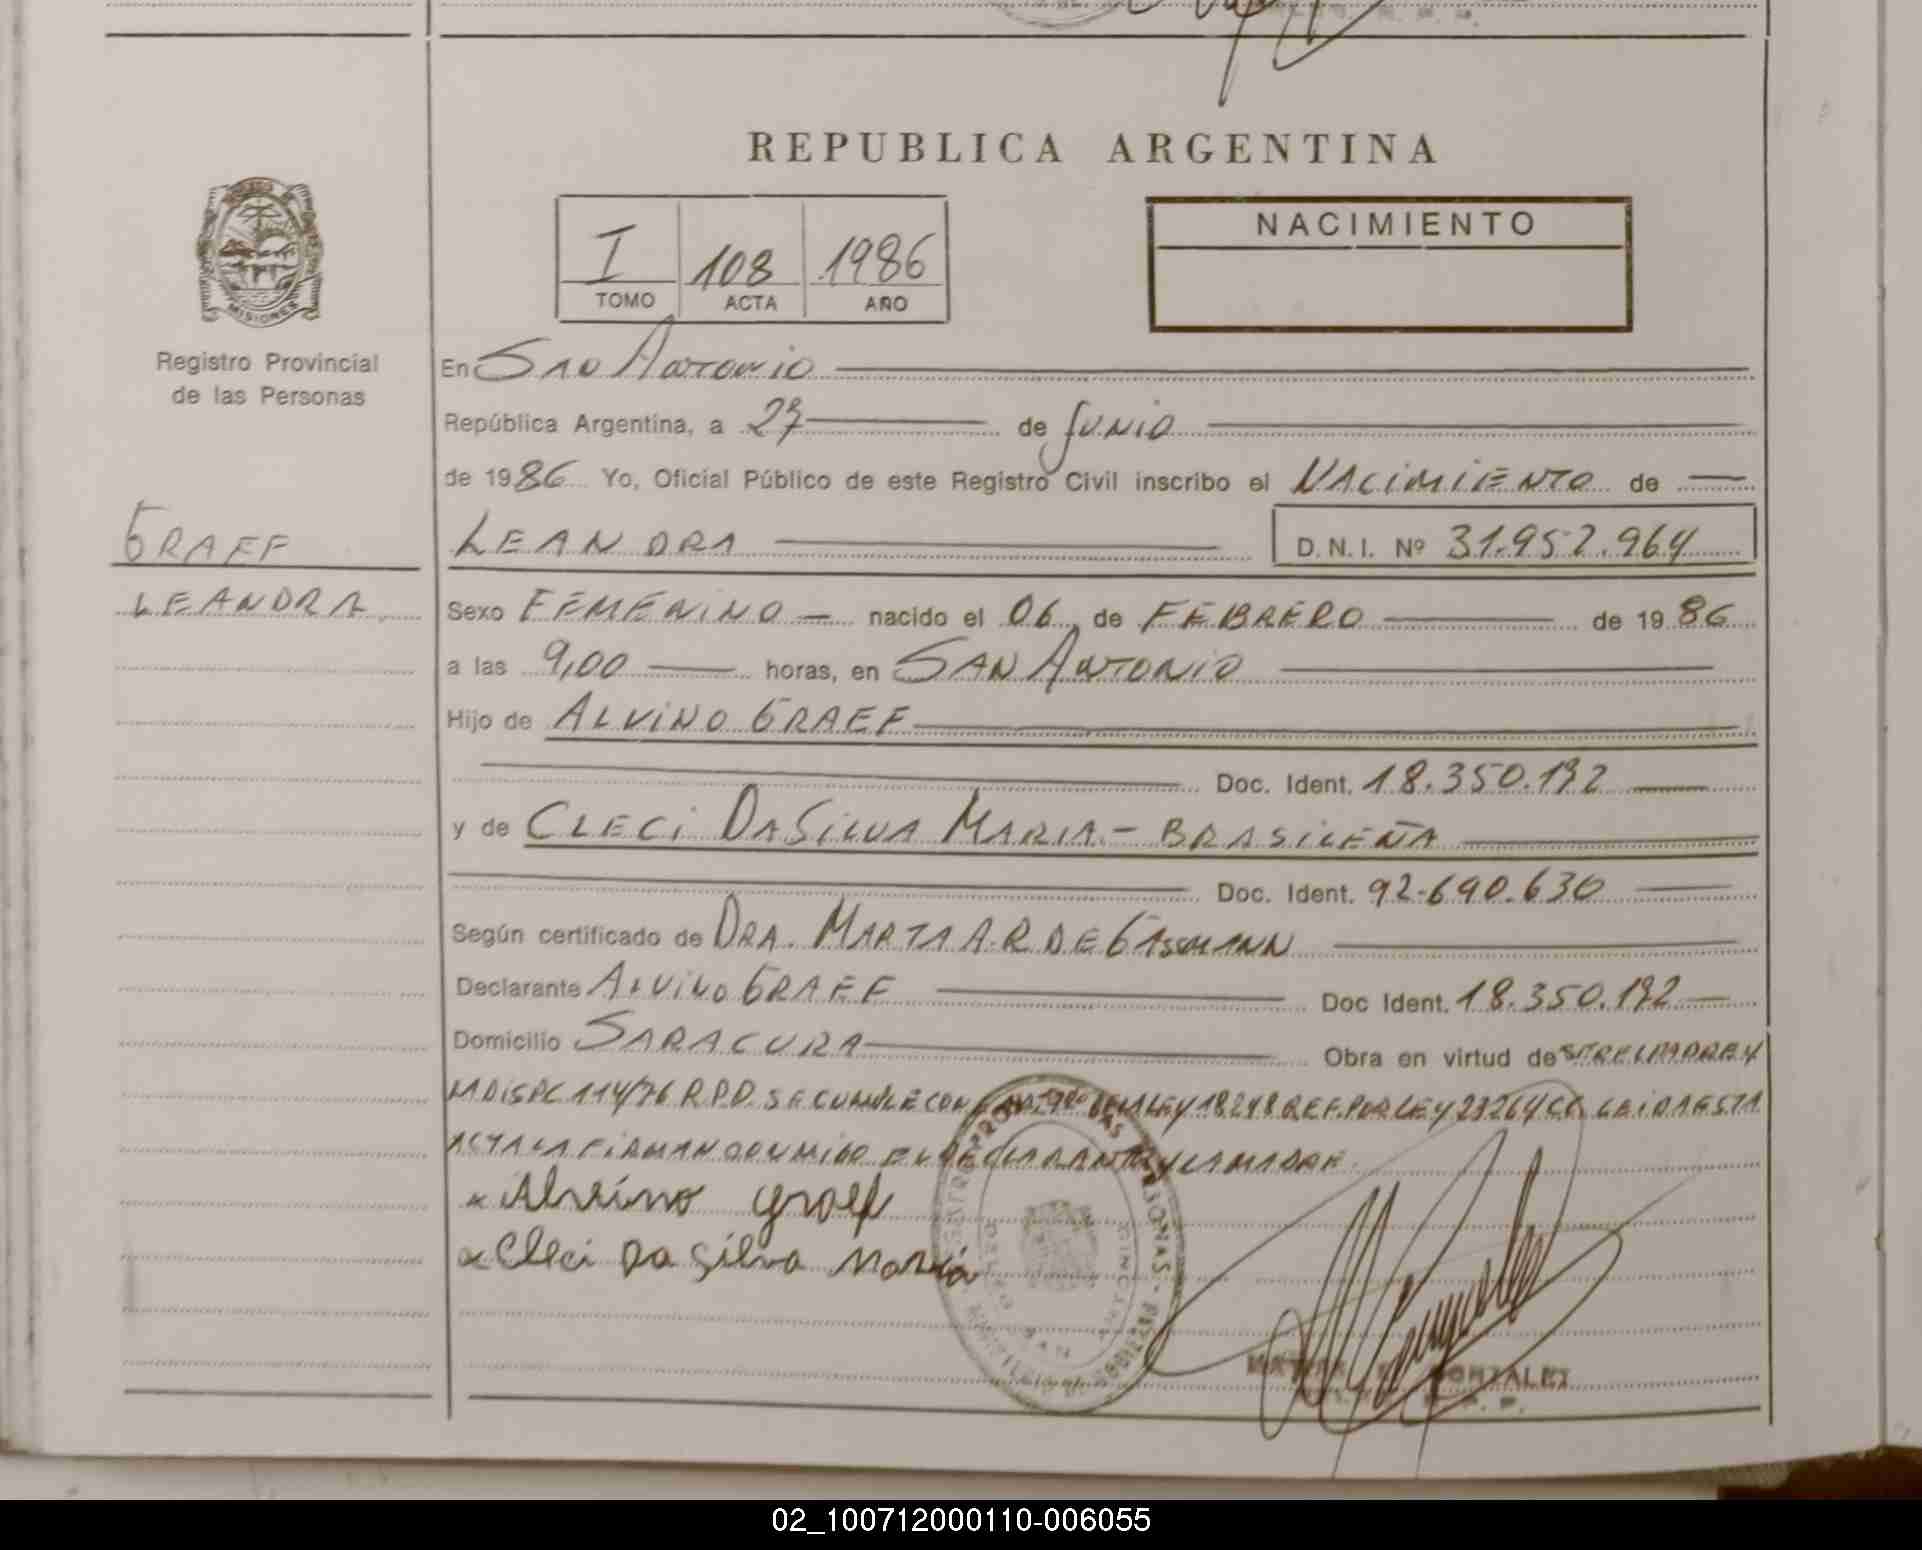 REPUBLICA ARGENTINA
NACIMIENTO
I 108 1986
TOMO ACTA AÑO
MISIONES
Registro Provincial
de las Personas
GRAEF
LEANDRA
En SAN ANTONIO
República Argentina, a 27 de JUNIO
de 1986 Yo, Oficial Público de este Registro Civil inscribo el NACIMIENTO de
LEANDRA D.N.I. Nº 31.952.964
Sexo FEMENINO nacido el 06 de FEBRERO de 1986
a las 9,00 horas, en SAN ANTONIO
Hijo de ALVINO GRAEF
Doc. Ident. 18.350.192
y de CLECI DA SILVA MARIA - BRASILEÑA
Doc. Ident. 92.690.630
Según certificado de DRA. MARTA A. R DE GASSMANN
Declarante ALVINO GRAEF Doc Ident. 18.350.192
Domicilio SARACURA Obra en virtud de
114/76 R.P.P. SE CUMPLE CON LEY 18248 REF. POR LEY 23264 LEIDA ESTA
ACTA LA FIRMAN CONMIGO EL DECLARANTE Y LA MADRE.
Alvino Graef
Cleci Da Silva Maria
GONZALEZ
02_100712000110-006055